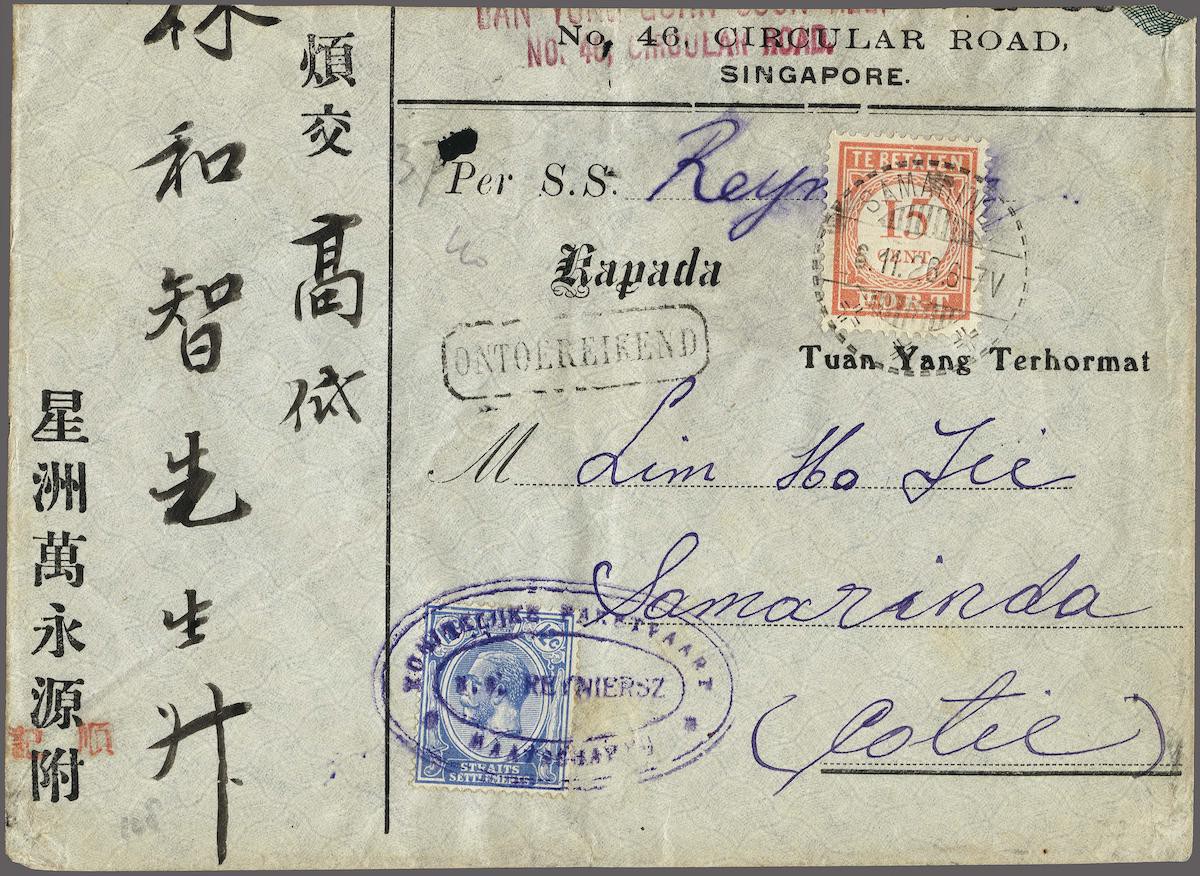 No. 46, CIRCULAR ROAD,
NO. 46, CIRCULAR ROAD.
SINGAPORE.
Per S.S. Reyn
TE BETALEN
15
CENT
PORT
SAMARINDA
6.11.26.6-7V
Kapada
ONTOEREIKEND
Tuan Yang Terhormat
M Lim Ho Tie
Samarinda
(Cotie)
KONINKLIJKE PAKETVAART
REYNIERSZ
MAATSCHAPPIJ
STRAITS
SETTLEMENTS
煩交高低
林和智先生升
星洲萬永源附
順記